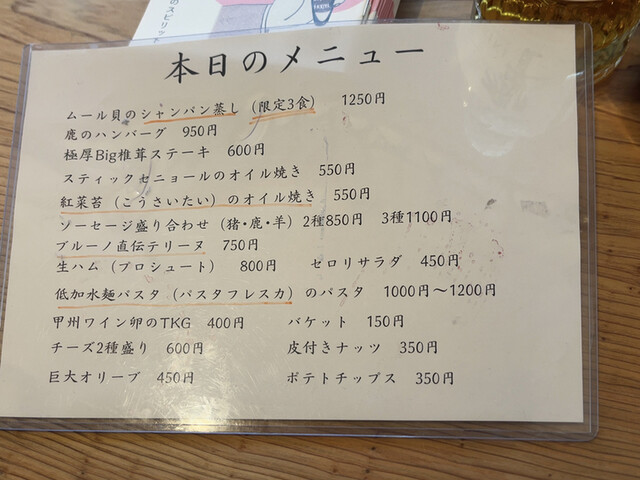 のスピリット
本日のメニュー
ムール貝のシャンパン蒸し（限定3食） 1250円
鹿のハンバーグ 950円
極厚Big椎茸ステーキ 600円
スティックセニョールのオイル焼き 550円
紅菜苔（こうさいたい）のオイル焼き 550円
ソーセージ盛り合わせ（猪・鹿・羊）2種850円 3種1100円
ブルーノ直伝テリーヌ 750円
生ハム（プロシュート） 800円 セロリサラダ 450円
低加水麺パスタ（パスタフレスカ）のパスタ 1000円～1200円
甲州ワイン卵のTKG 400円 バケット 150円
チーズ2種盛り 600円 皮付きナッツ 350円
巨大オリーブ 450円 ポテトチップス 350円